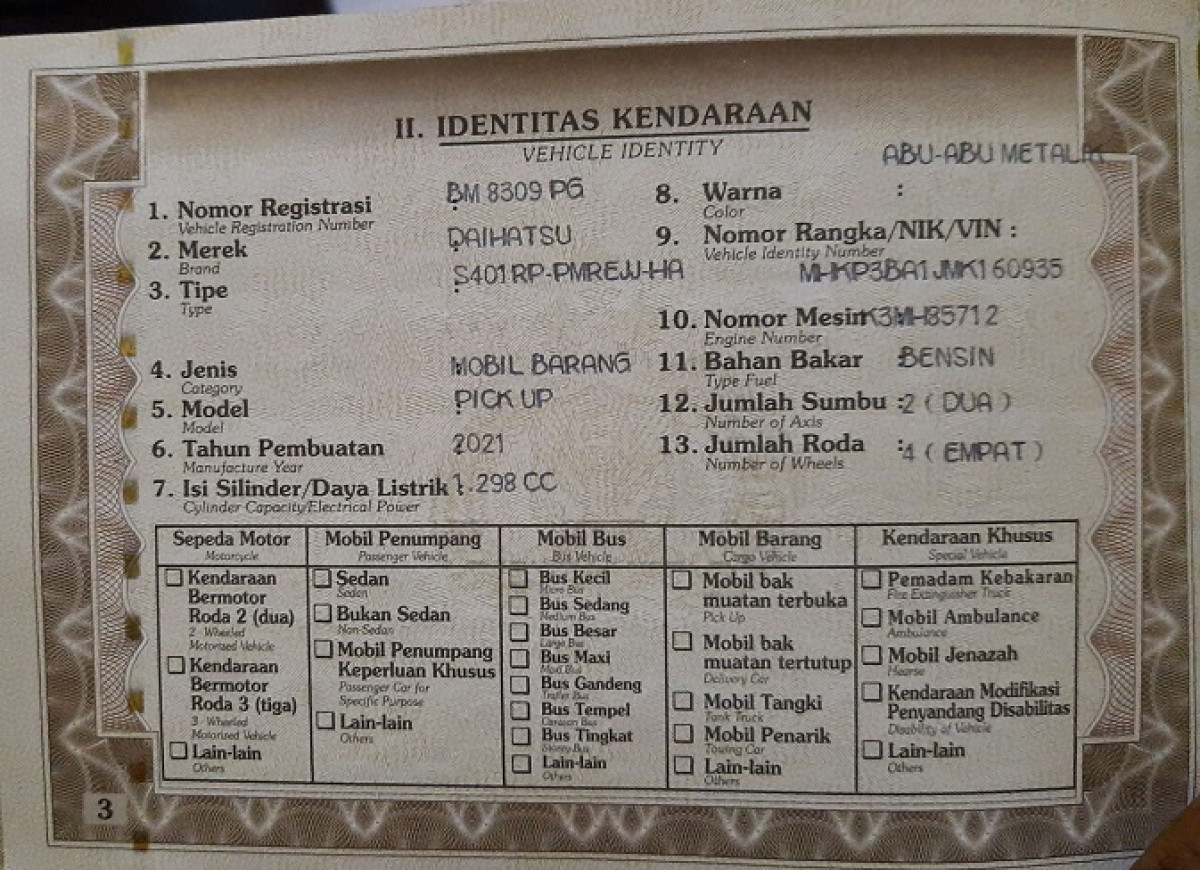 II. IDENTITAS KENDARAAN
VEHICLE IDENTITY
1. Nomor Registrasi : BM 8309 PG
Vehicle Registration Number
2. Merek : DAIHATSU
Brand
3. Tipe : S401RP-PMREJJ-HA
Type
4. Jenis : MOBIL BARANG
Category
5. Model : PICK UP
Model
6. Tahun Pembuatan : 2021
Manufacture Year
7. Isi Silinder/Daya Listrik : 1.298 CC
Cylinder Capacity/Electrical Power
8. Warna : ABU-ABU METALIK
Color
9. Nomor Rangka/NIK/VIN :
Vehicle Identity Number
MHKP3BA1JMK160935
10. Nomor Mesin K3MH85712
Engine Number
11. Bahan Bakar : BENSIN
Type Fuel
12. Jumlah Sumbu : 2 ( DUA )
Number of Axis
13. Jumlah Roda : 4 ( EMPAT )
Number of Wheels
Sepeda Motor
Motorcycle
Kendaraan
Bermotor
Roda 2 (dua)
2 - Wheeled
Motorized Vehicle
Kendaraan
Bermotor
Roda 3 (tiga)
3 - Wheeled
Motorized Vehicle
Lain-lain
Others
Mobil Penumpang
Passenger Vehicle
Sedan
Sedan
Bukan Sedan
Non-Sedan
Mobil Penumpang
Keperluan Khusus
Passenger Car for
Specific Purpose
Lain-lain
Others
Mobil Bus
Bus Vehicle
Bus Kecil
Micro Bus
Bus Sedang
Medium Bus
Bus Besar
Large Bus
Bus Maxi
Maxi Bus
Bus Gandeng
Trailer Bus
Bus Tempel
Caravan Bus
Bus Tingkat
Bus
Lain-lain
Others
Mobil Barang
Cargo Vehicle
Mobil bak
muatan terbuka
Pick Up
Mobil bak
muatan tertutup
Delivery Car
Mobil Tangki
Tank Truck
Mobil Penarik
Towing Car
Lain-lain
Others
Kendaraan Khusus
Special Vehicle
Pemadam Kebakaran
Fire Extinguisher Truck
Mobil Ambulance
Ambulance
Mobil Jenazah
Hearse
Kendaraan Modifikasi
Penyandang Disabilitas
Disability of Vehicle
Lain-lain
Others
3